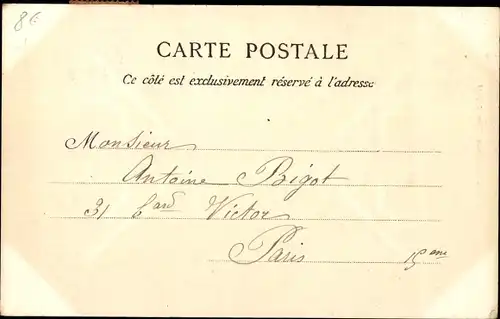 8€
CARTE POSTALE
Ce côté est exclusivement réservé à l'adresse
Monsieur
Antoine Bigot
31 Bard Victor
Paris 15eme